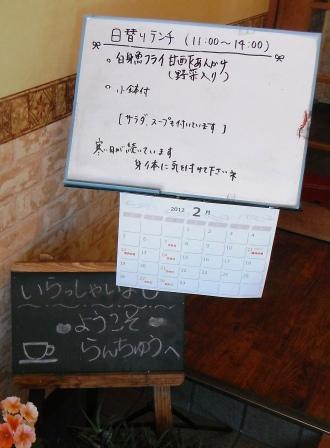 日替りランチ (11:00〜14:00)
◦ 白身魚フライ 甘酢あんかけ
(野菜入り)
◦ 小鉢付
[サラダ、スープも付いています]
寒い日が続いています
身体に気を付けて下さいネ
2012 2月
いらっしゃいませ
ようこそ
らんちゅうへ